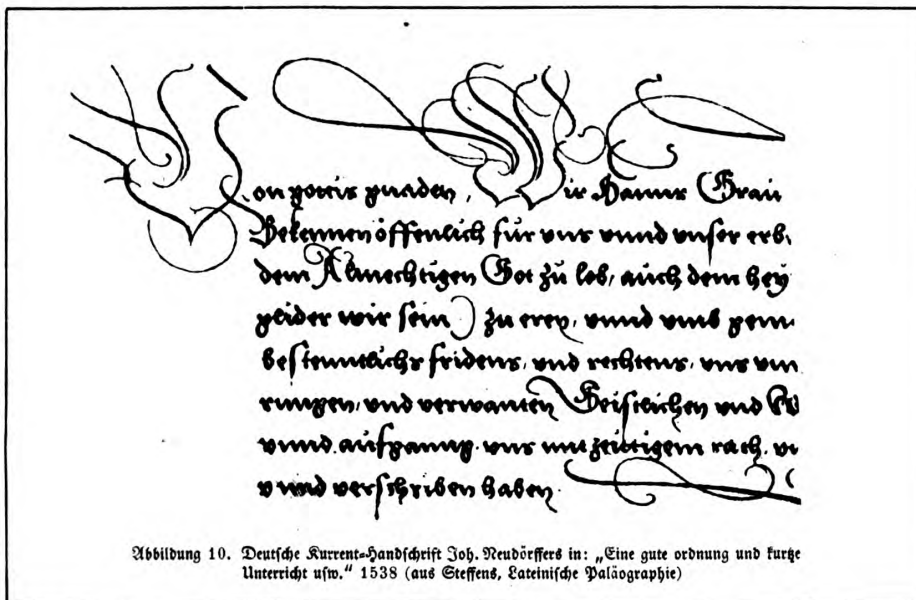 Von gottis gnaden, Wir Hanns Graú
Bekennen öffenlich für vns vnnd vnser erb,
dem Almechtigen Got zů lob, auch dem hey
glider wir sein) zu eren, vnnd vmb gem
bestenntlichs fridens, vnd rechtens, vns vnn
rungen, vnd verwanten Geistlichen vnd
vnnd aufgang vns mit zeittigem rath, v
vnnd verschriben haben
Abbildung 10. Deutsche Kurrent=Handschrift Joh. Neudörffers in: „Eine gute ordnung und kurtze
Unterricht usw.“ 1538 (aus Steffens, Lateinische Paläographie)